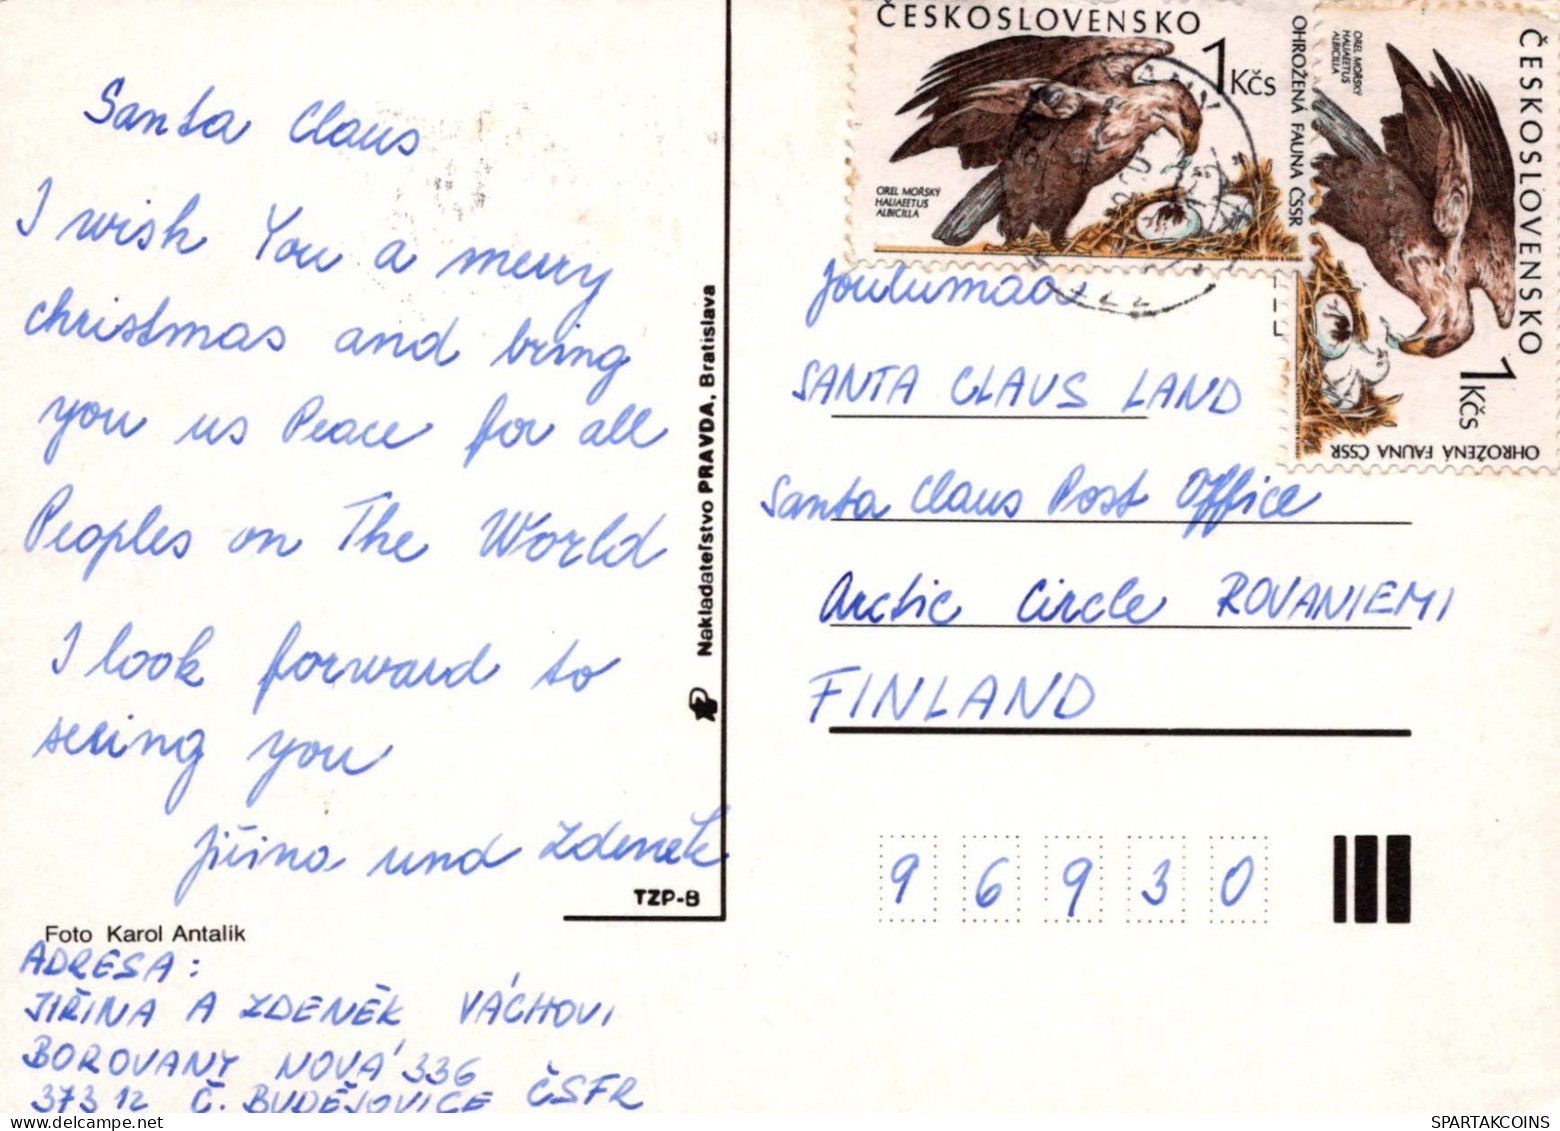 Santa Claus
I wish You a merry
christmas and bring
you us Peace for all
Peoples on The World
I look forward to
seeing you
Jiřina und Zdenek
TZP-8
Foto Karol Antalík
ADRESA:
JIŘINA A ZDENĚK VÁCHOVI
BOROVANY NOVÁ 336
373 12 Č. BUDĚJOVICE ČSFR
Nakladateľstvo PRAVDA, Bratislava
ČESKOSLOVENSKO
1 Kčs
OREL MOŘSKÝ
HALIAEETUS
ALBICILLA
OHROŽENÁ FAUNA ČSSR
ČESKOSLOVENSKO
1 Kčs
OREL MOŘSKÝ
HALIAEETUS
ALBICILLA
OHROŽENÁ FAUNA ČSSR
Joulumaa
SANTA CLAUS LAND
Santa Claus Post Office
Arctic Circle ROVANIEMI
FINLAND
9 6 9 3 0
SPARTAKCOINS